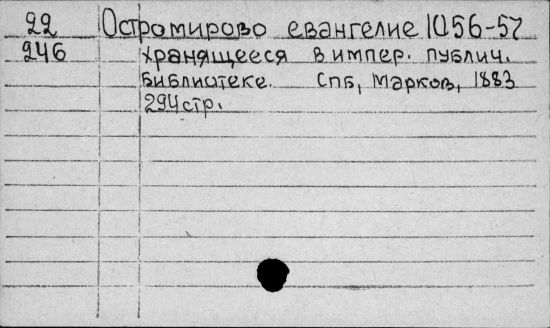 22 Остромирово евангелие 1056-57
246 хранящееся в импер. публич.
библиотеке. Спб, Марков, 1883
294стр.